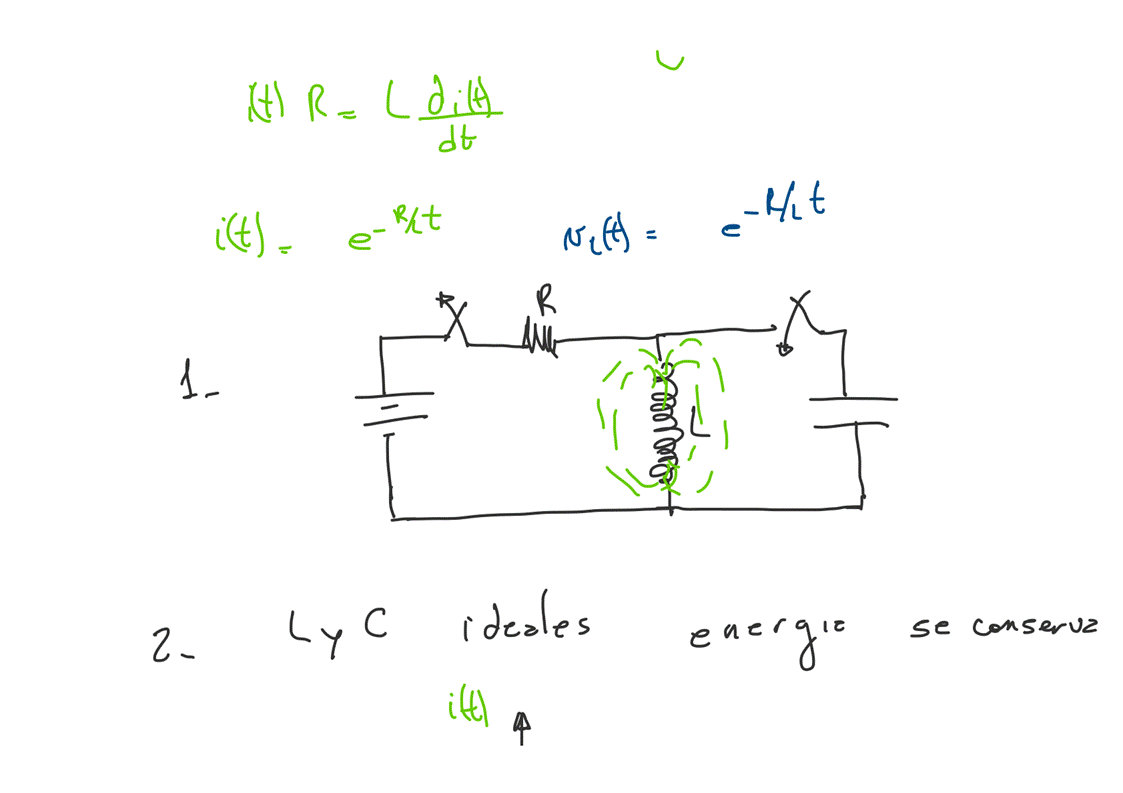 i(t) R = L di(t)/dt
i(t) = e^-R/L t
v_L(t) = e^-R/L t
R
1-
L
2- L y C ideales energia se conserva
i(t) ↑